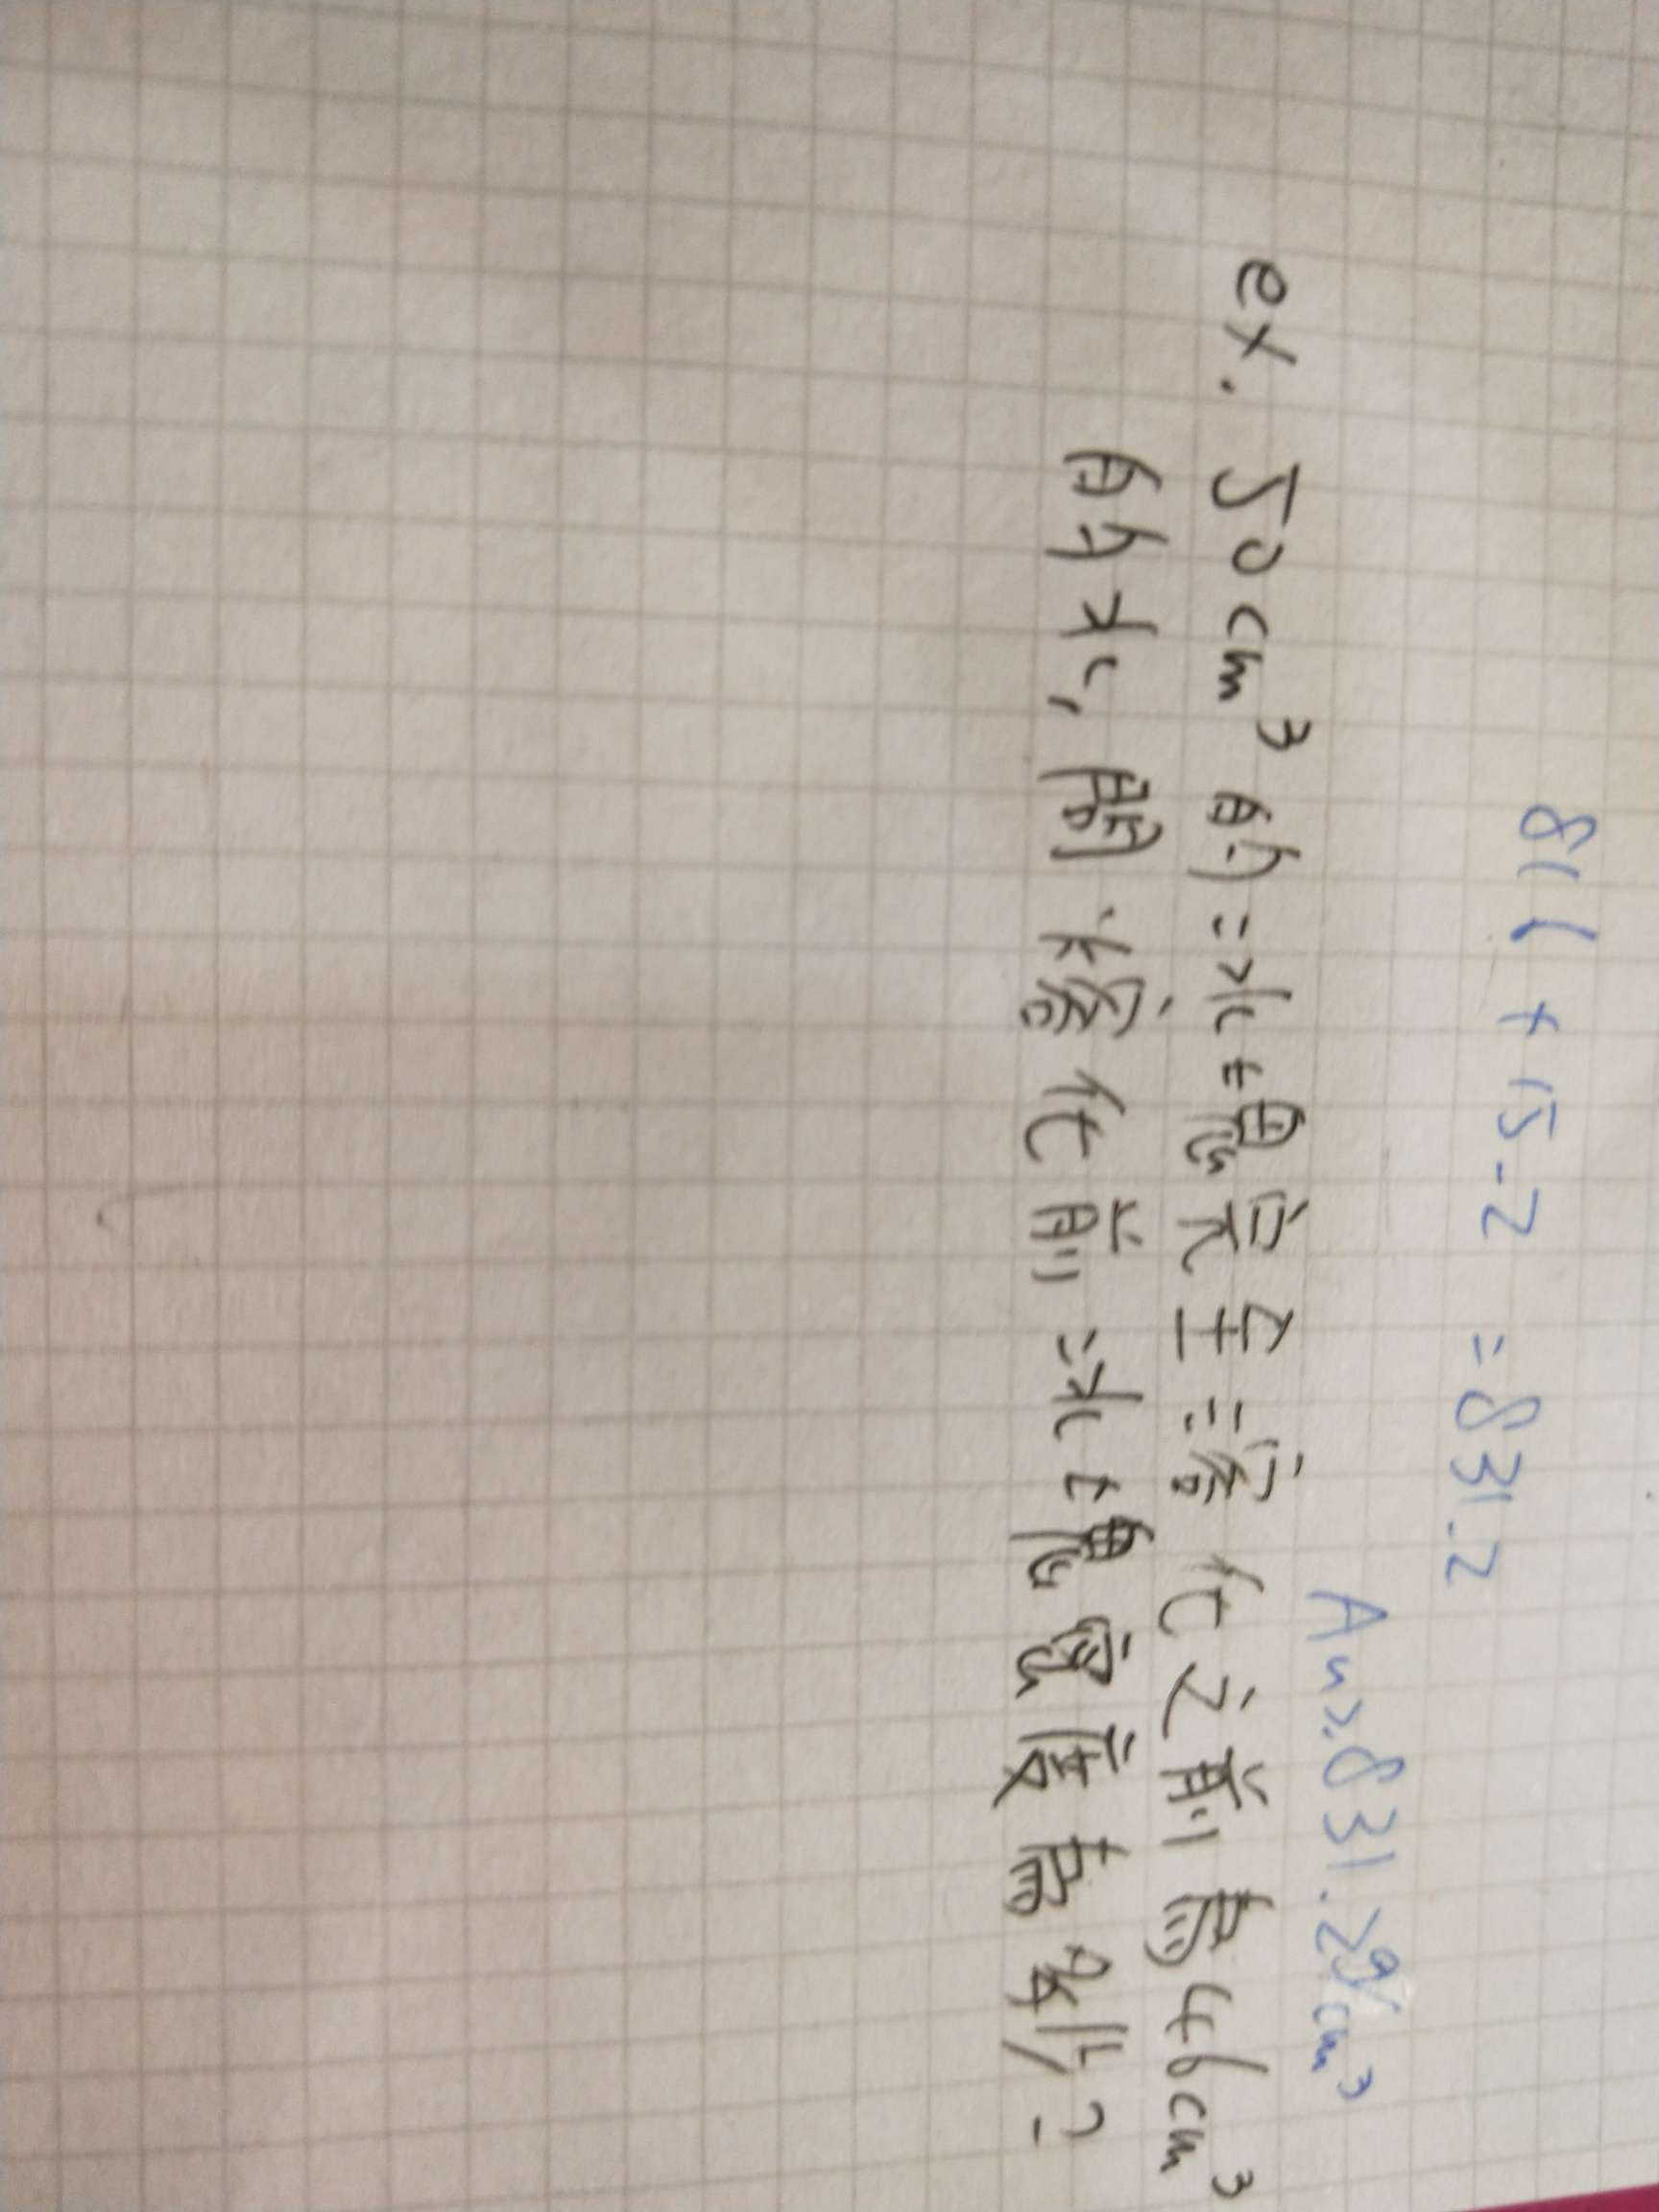 811 + 15.2 = 831.2
Ans. 831.2g/cm³
ex. 50cm³的冰塊完全溶化之前為46cm³
的水,開溶化前冰塊密度為多少?